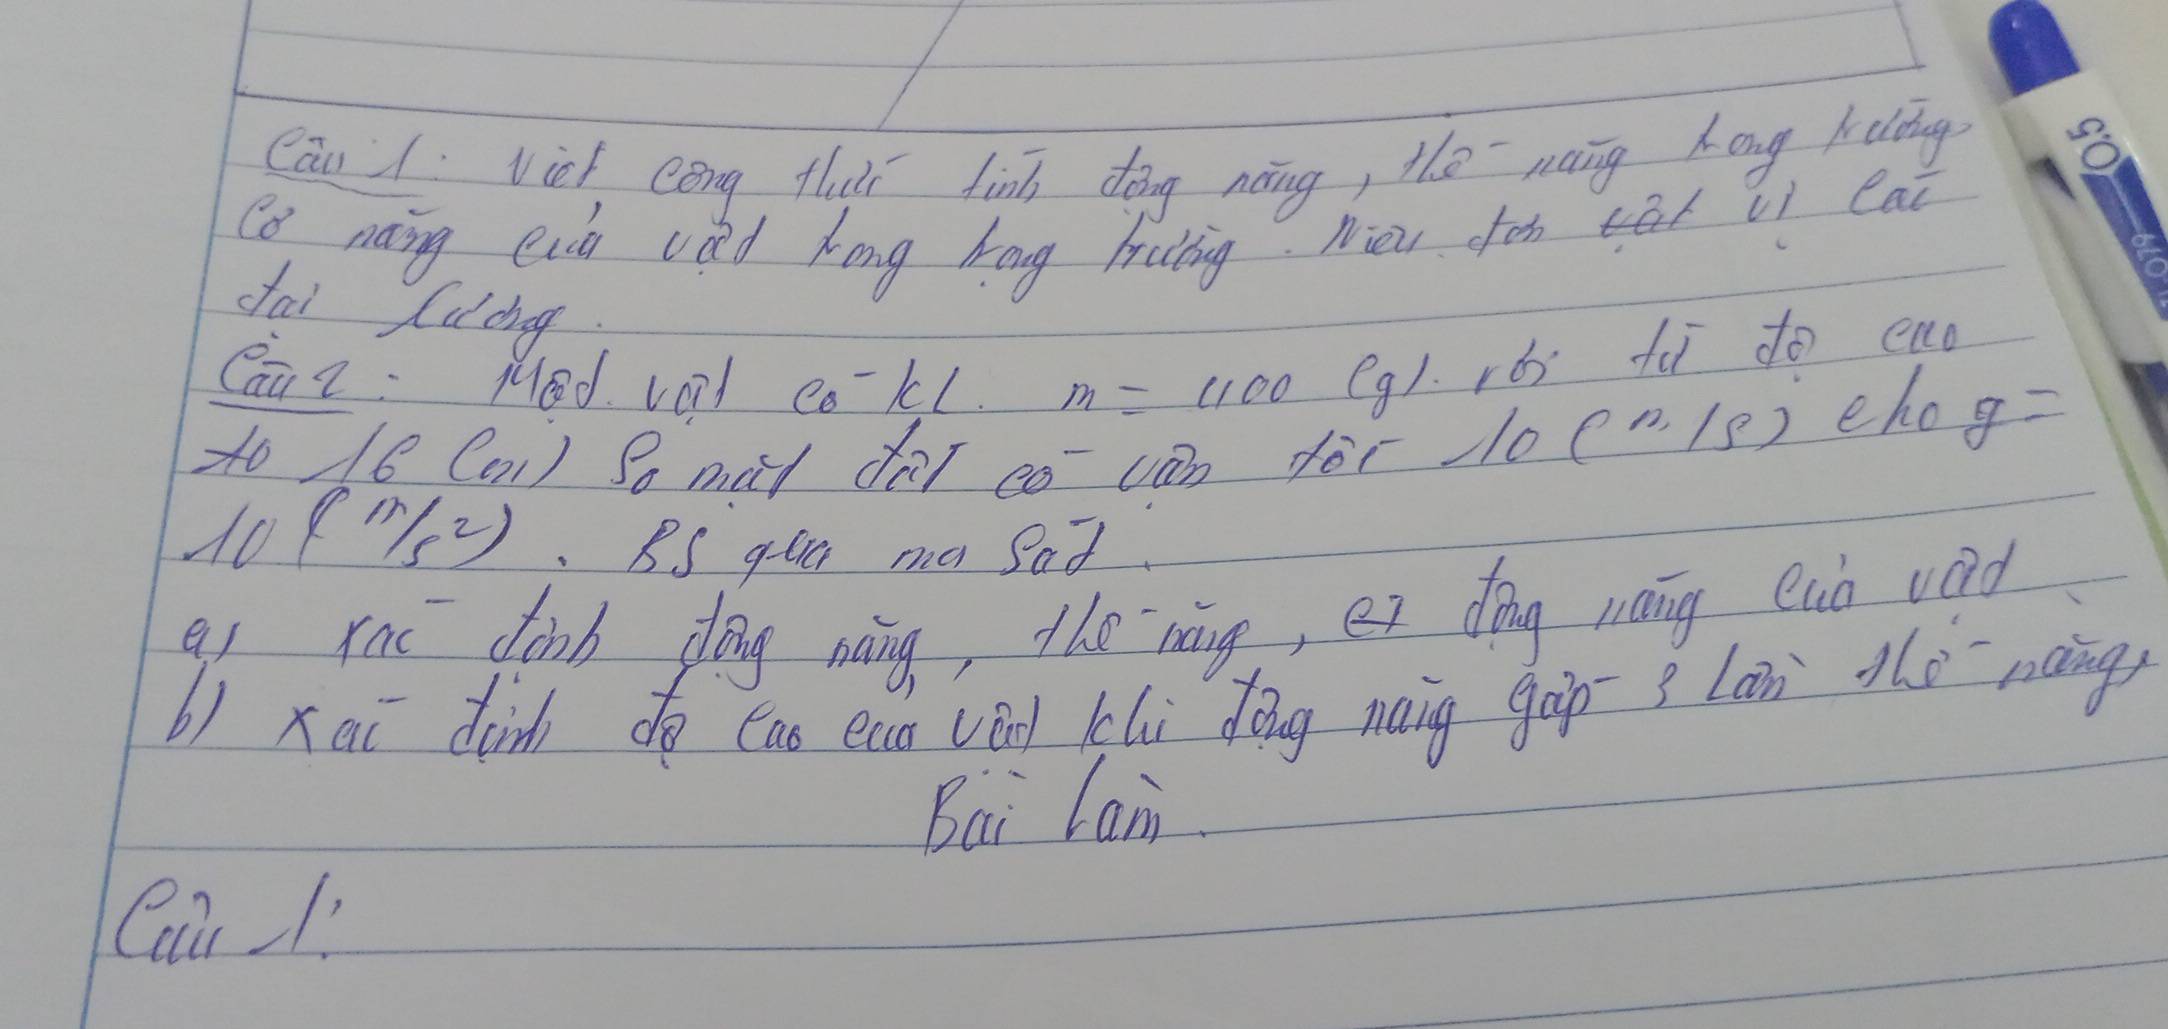 Câu 1: Viết công thức tính động năng, thế năng trong trường
Cơ năng của vật trong trọng trường. Nêu đơn vật vị các
đại lượng.
Câu 2: Một vật có kl. m = 400 (g). rơi từ độ cao
10 16 (m) so mặt đất có vận tốc 10 (m/s) cho g =
10 (m/s²). Bỏ qua ma sát.
a) xác định động năng, thế năng, động năng của vật
b) xác định độ cao của vật khi động năng gấp 3 lần thế năng,
Bài làm.
Câu 1:
0.5